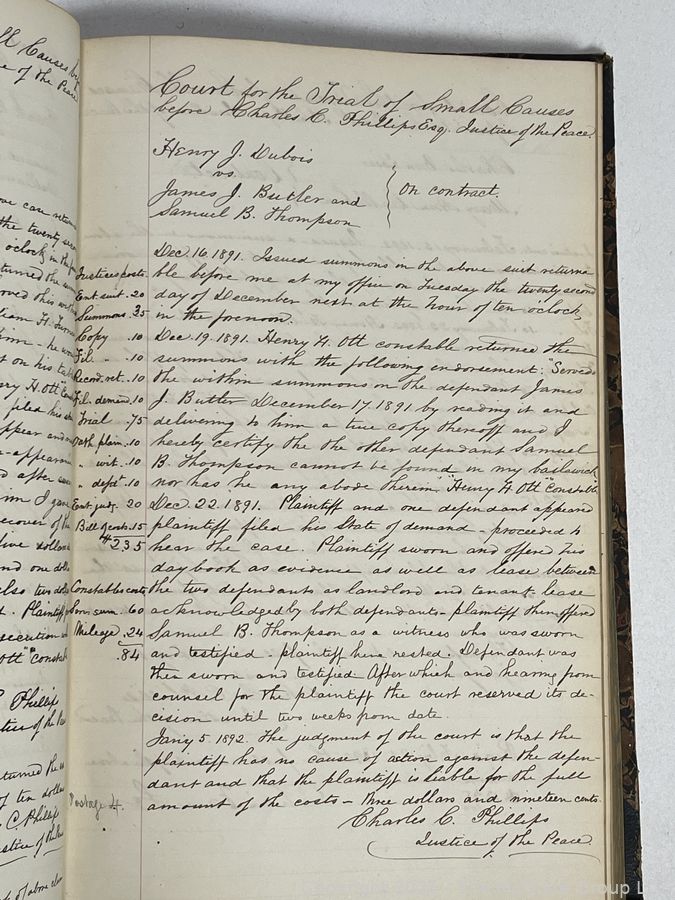 Court for the Trial of Small Causes
before Charles C. Phillips Esq. Justice of the Peace.
Henry J. Dubois
vs.
James J. Butler and
Samuel B. Thompson
On contract.
Dec. 16, 1891. Issued summons in the above suit returna-
ble before me at my office on Tuesday the twenty second
day of December next at the hour of ten o'clock
in the forenoon.
Dec. 19, 1891. Henry H. Ott constable returned the
summons with the following endorsement: "Served
the within summons on the defendant James
J. Butler December 17, 1891 by reading it and
delivering to him a true copy thereoff and I
hereby certify the the other defendant Samuel
B. Thompson cannot be found in my bailawick
nor has he any abode therein "Henry H. Ott" Constable
Dec. 22, 1891. Plaintiff and one defendant appeared
plaintiff filed his State of demand - proceeded to
hear the case. Plaintiff sworn and offered his
day book as evidence as well as lease between
the two defendants as landlord and tenant - lease
acknowledged by both defendants - plaintiff then offered
Samuel B. Thompson as a witness who was sworn
and testified - plaintiff here rested. Defendant was
then sworn and testified. After which and hearing from
counsel for the plaintiff the court reserved its de-
cision until two weeks from date.
Jan'y 5, 1892. The judgment of the court is that the
plaintiff has no cause of action against the defen-
dant and that the plaintiff is liable for the full
amount of the costs - three dollars and nineteen cents
Charles C. Phillips
Justice of the Peace.
Justices costs
Ent. suit .20
Summons .35
Copy .10
Fil. " .10
Record. ret. .10
Fil. demand .10
Trial .75
Oath plain. .10
" wit. .10
" defst. .10
Ent. judg. .20
Bill of costs .15
$2.35
Constables costs
Srv. sum. .60
Mileage .24
.84
Postage 4.